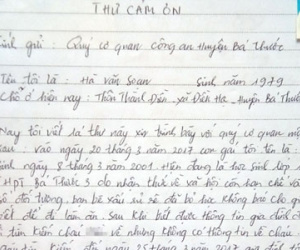 THƯ CẢM ƠN
Kính gửi: Quý cơ quan công an Huyện Bá Thước
Tên tôi là: Hà Văn Soan Sinh năm 1979
Chỗ ở hiện nay: Thôn Thành Điền - xã Điền Hạ - Huyện Bá Thước
Nay tôi viết lá thư này xin trình bày với quý cơ quan một
sau: vào ngày 20 tháng 3 năm 2017 con gái tôi tên là:
sinh ngày 8 tháng 3 năm 2001 Hiện đang là học sinh lớp 1
THPT Bá Thước 3 do nhận thức về xã hội còn hạn chế và
số đối tượng, bạn bè xấu rủ rê đã bỏ học không báo cho gia
biết để đi làm ăn. Sau khi biết được thông tin gia đình
tìm kiếm cháu về nhưng không có thông tin về cháu
ngày 25 tháng 3 năm 2017 gia đình